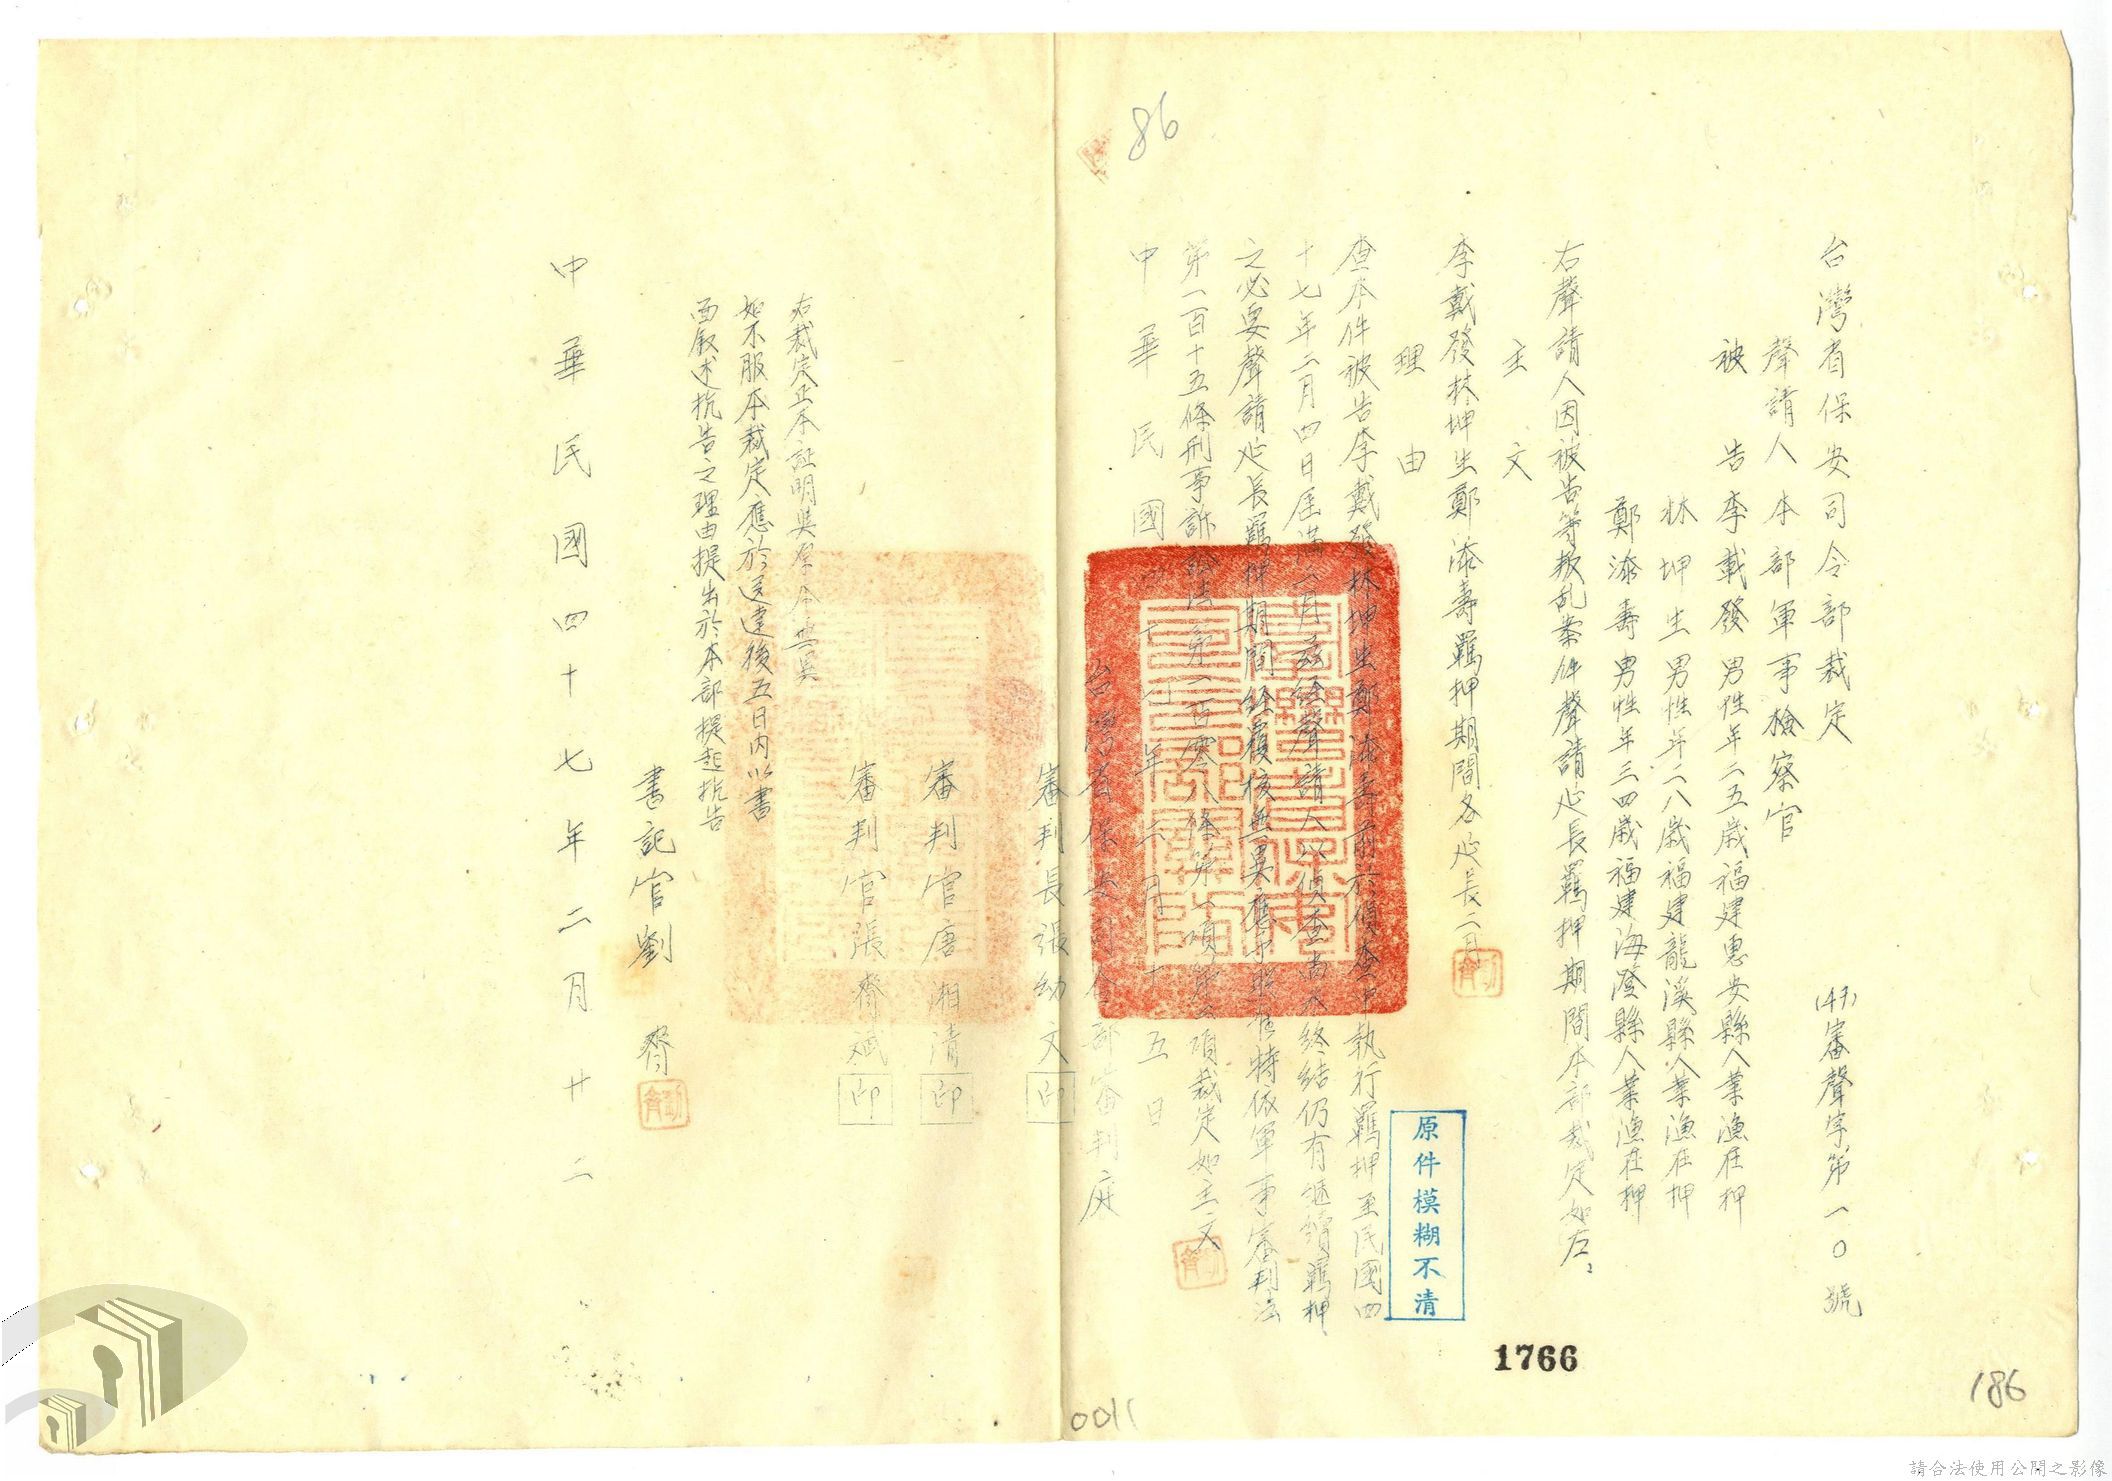 台灣省保安司令部裁定
(47)審聲字第一〇號
聲請人本部軍事檢察官
被告李載發男性年二五歲福建惠安縣人業漁在押
林坤生男性年二八歲福建龍溪縣人業漁在押
鄭添壽男性年三四歲福建海澄縣人業漁在押
右聲請人因被告等叛乱案件聲請延長羈押期間本部裁定如左：
主文
李戴發林坤生鄭添壽羈押期間各延長二月
理由
查本件被告李戴發林坤生鄭添壽前於偵查中執行羈押至民國四
十七年二月四日屆滿二月茲經聲請人以偵查尚未終結仍有繼續羈押
之必要聲請延長羈押期間經覆核無異應予照准特依軍事審判法
第一百十五條刑事訴訟法第一百零八條第一項第二項裁定如主文
中華民國四十七年二月十五日
台灣省保安司令部審判庭
審判長張幼文印
審判官唐湘清印
審判官張齊斌印
右裁定正本証明與原本無異
如不服本裁定應於送達後五日內以書
面敘述抗告之理由提出於本部提起抗告
書記官劉齊
中華民國四十七年二月廿二
86
原件模糊不清
1766
186
0011
請合法使用公開之影像